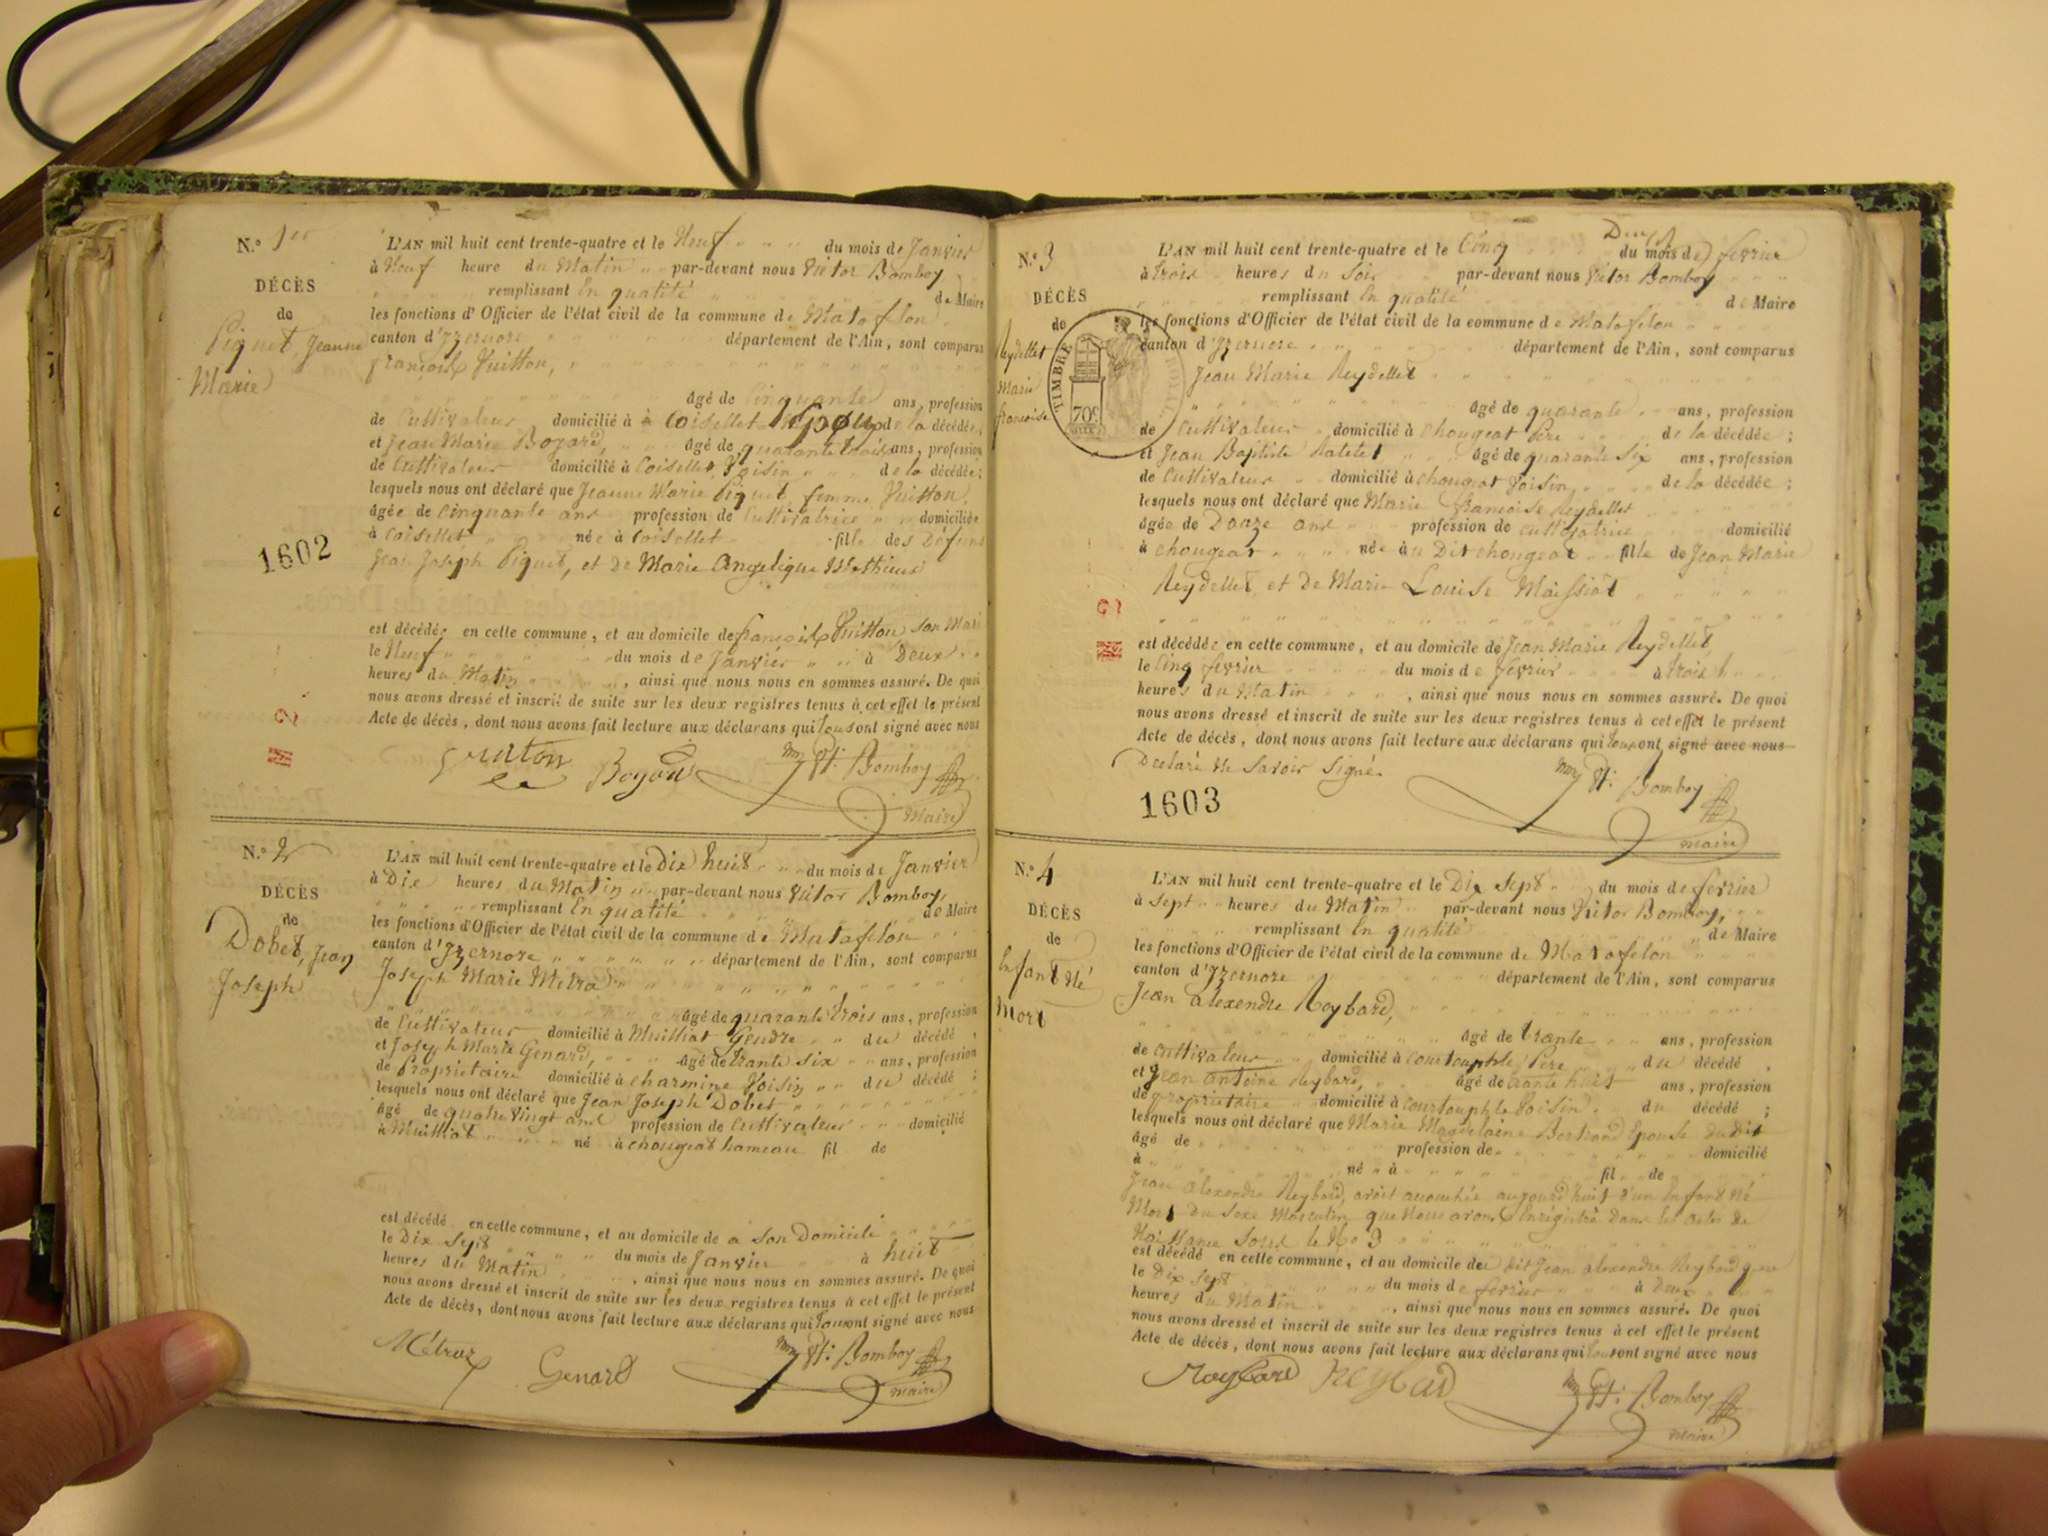 N.° 1er
DÉCÈS
de
Piquet Jeanne
Marie
L'AN mil huit cent trente-quatre et le Neuf du mois de Janvier
à Neuf heure du Matin par-devant nous Victor Bomboy
remplissant En qualité de Maire
les fonctions d'Officier de l'état civil de la commune de Matafelon
canton d'Izernore département de l'Ain, sont comparus
françois Vuitton,
âgé de Cinquante ans, profession
de Cultivateur domicilié à à Coisellet Epoux de la décédée;
et Jean Marie Bozard, âgé de quarante trois ans, profession
de Cultivateur domicilié à Coisellet Voisin de la décédée;
lesquels nous ont déclaré que Jeanne Marie Piquet femme Vuitton,
âgée de Cinquante ans profession de Cultivatrice domiciliée
à Coisellet née à Coisellet fille des Défunts
Jean Joseph Piquet, et de Marie Angelique Mathieux
1602
est décédée en cette commune, et au domicile de françois Vuitton son Mari
le Neuf du mois de Janvier à Deux
heures du Matin, ainsi que nous nous en sommes assuré. De quoi
nous avons dressé et inscrit de suite sur les deux registres tenus à cet effet le présent
Acte de décès, dont nous avons fait lecture aux déclarans qui tous ont signé avec nous
Bomboy
maire
N.° 2
DÉCÈS
de
Dobet, Jean
Joseph
L'AN mil huit cent trente-quatre et le Dix huit du mois de Janvier
à Dix heures du Matin par-devant nous Victor Bomboy,
remplissant En qualité de Maire
les fonctions d'Officier de l'état civil de la commune de Matafelon
canton d'Izernore département de l'Ain, sont comparus
Joseph Marie Métra
âgé de quarante trois ans, profession
de Cultivateur domicilié à Muilliat Gendre du décédé,
et Joseph Marie Genard, âgé de trante six ans, profession
de Propriétaire domicilié à Charmine Voisin du décédé;
lesquels nous ont déclaré que Jean Joseph Dobet
âgé de quatre vingt ans profession de Cultivateur domicilié
à Muilliat né à chougeat hameau fil de
est décédé en cette commune, et au domicile de à son Domicile
le Dix Sept du mois de Janvier à huit
heures du Matin, ainsi que nous nous en sommes assuré. De quoi
nous avons dressé et inscrit de suite sur les deux registres tenus à cet effet le présent
Acte de décès, dont nous avons fait lecture aux déclarans qui tous ont signé avec nous
Métraz Genard Bomboy
maire
N.° 3
DÉCÈS
de
Reydellet
Marie
francoise
TIMBRE ROYAL
70c
L'AN mil huit cent trente-quatre et le Cinq du mois de fevrier
à trois heures du Soir par-devant nous Victor Bomboy
remplissant En qualité de Maire
les fonctions d'Officier de l'état civil de la commune de Matafelon
canton d'Izernore département de l'Ain, sont comparus
Jean Marie Reydellet
âgé de quarante ans, profession
de Cultivateur domicilié à Chougeat Père de la décédée;
et Jean Baptiste âgé de quarante Six ans, profession
de Cultivateur domicilié à chougeat Voisin de la décédée;
lesquels nous ont déclaré que Marie francoise Reydellet
âgée de Douze ans profession de cultivatrice domicilié
à chougeat née à u Dit chougeat fille de Jean Marie
Reydellet, et de Marie Louise Maissiat
est décédée en cette commune, et au domicile de Jean Marie Reydellet,
le Cinq fevrier du mois de fevrier à trois h
heures du Matin, ainsi que nous nous en sommes assuré. De quoi
nous avons dressé et inscrit de suite sur les deux registres tenus à cet effet le présent
Acte de décès, dont nous avons fait lecture aux déclarans qui tous ont signé avec nous
Declaré Ne Savoir Signé. Bomboy
1603
maire
N.° 4
DÉCÈS
de
Enfant Né
Mort
L'AN mil huit cent trente-quatre et le Dix Sept du mois de fevrier
à Sept heures du Matin par-devant nous Victor Bomboy,
remplissant En qualité de Maire
les fonctions d'Officier de l'état civil de la commune de Matafelon
canton d'Izernore département de l'Ain, sont comparus
Jean alexendre Reybard,
âgé de trante ans, profession
de Cultivateur domicilié à Courtouphle Père du décédé,
et Jean Antoine Reybard, âgé de trante huit ans, profession
de propriétaire domicilié à courtouphle Voisin du décédé;
lesquels nous ont déclaré que Marie Magdelaine Bertrand Epouse du dit
âgé de profession de domicilié
à né à fil de
Jean alexendre Reybard, avoit accouchée aujourd'huit d'un Enfant Né
Mort du Sexe Masculin que Nous avons Enregistré dans les actes de
Naissance Sous le No 3
est décédé en cette commune, et au domicile de dit Jean alexendre Reybard
le Dix Sept du mois de fevrier à Deux
heures du Matin, ainsi que nous nous en sommes assuré. De quoi
nous avons dressé et inscrit de suite sur les deux registres tenus à cet effet le présent
Acte de décès, dont nous avons fait lecture aux déclarans qui tous ont signé avec nous
Reybard Reybard Bomboy
maire